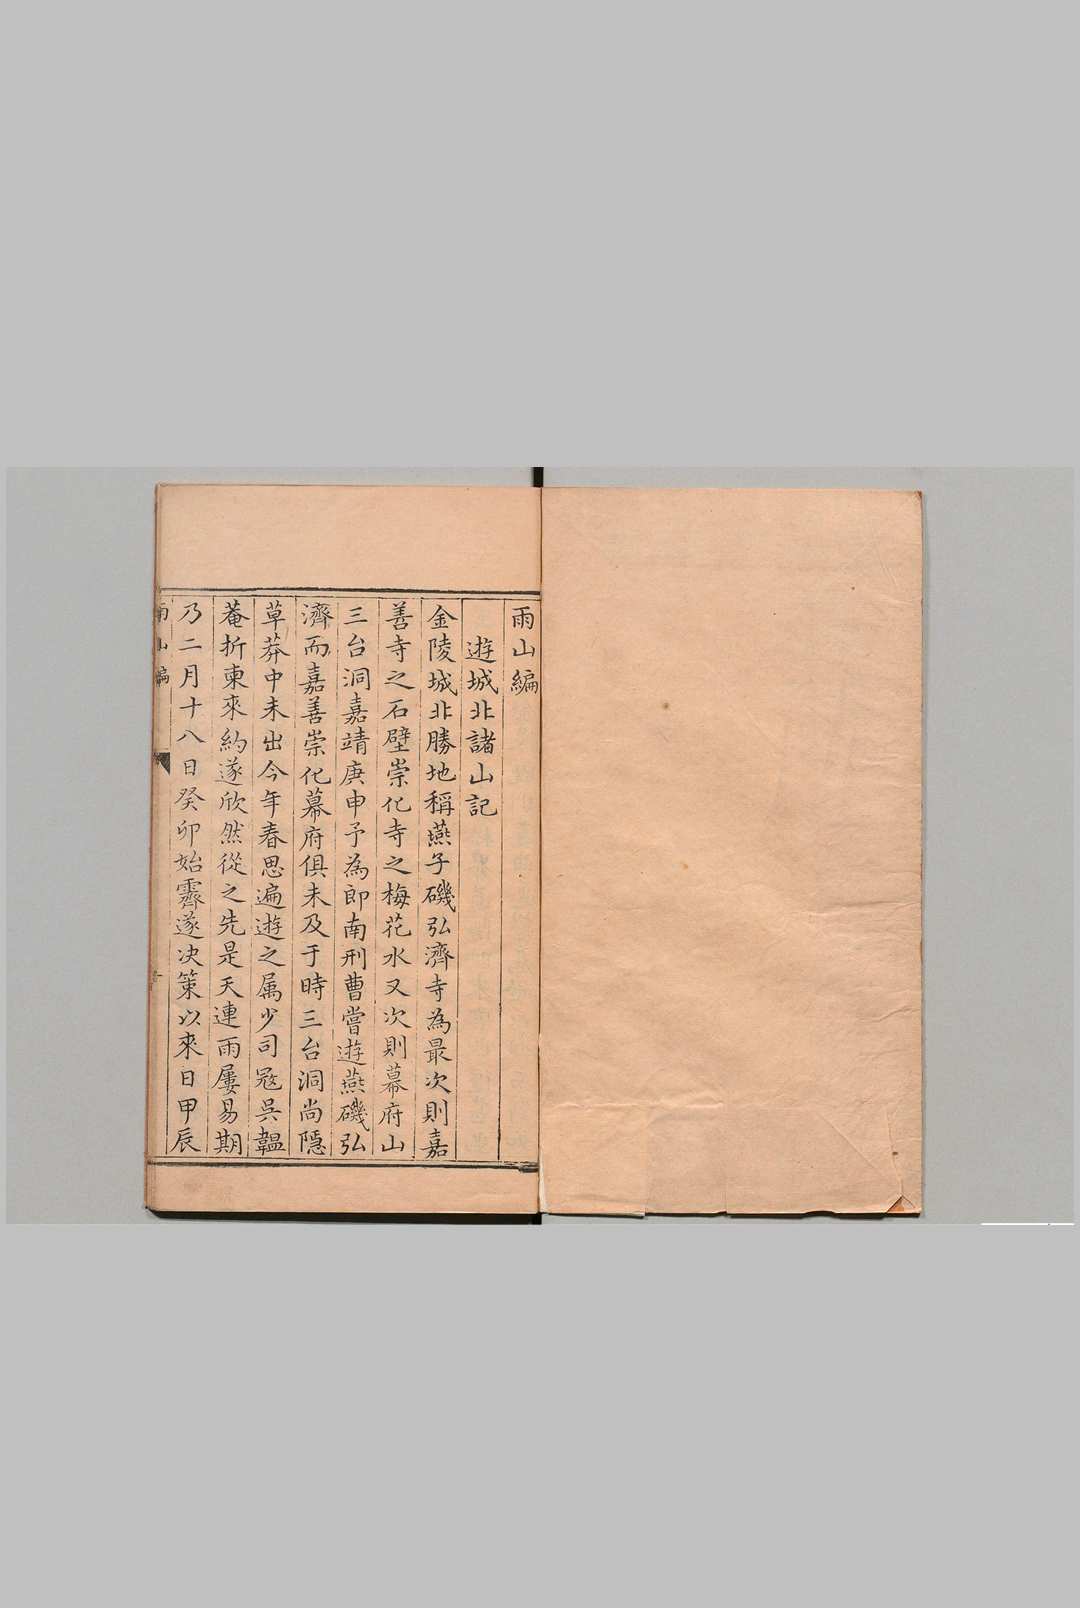 雨山編
遊城北諸山記
金陵城北勝地稱燕子磯弘濟寺為最次則嘉
善寺之石壁崇化寺之梅花水又次則幕府山
三台洞嘉靖庚申予為郎南刑曹嘗遊燕磯弘
濟而嘉善崇化幕府俱未及于時三台洞尚隱
草莽中未出今年春思遍遊之属少司寇吳韞
菴折柬來約遂欣然從之先是天連雨屢易期
乃二月十八日癸卯始霽遂决策以來日甲辰
雨山編